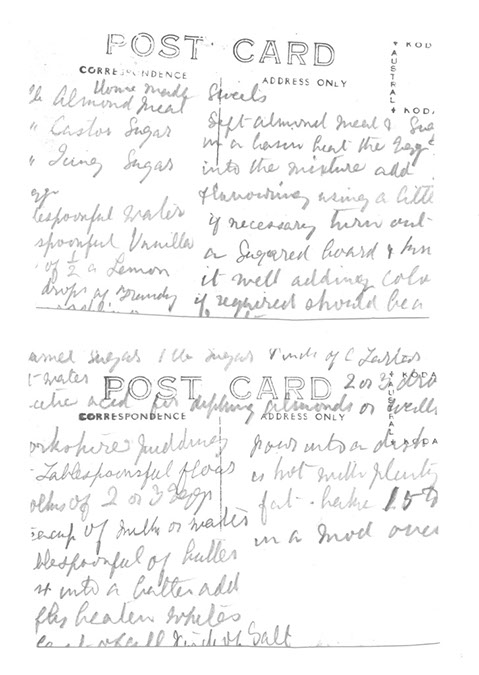 POST CARD
CORRESPONDENCE
ADDRESS ONLY
AUSTRAL
KOD
KODA
Home made
lb Almond Meal
" Castor Sugar
" Icing Sugar
lespoonful water
spoonful Vanilla
of ½ a Lemon
drops of Brandy
Sweets
Sift almond meal &
in a basin beat the
into the mixture add
flavouring using a littl
if necessary turn out
on Sugared board &
it well adding colo
if required should be a
Sugar 1 lb Sugar Pinch of C Tartar
t water
2 or 3
acid for dipping almonds or
POST CARD
CORRESPONDENCE
ADDRESS ONLY
AUSTRAL
KODA
KODA
orkshire Pudding
Tablespoonsful flour
olks of 2 or 3 Eggs
eacup of milk or water
blespoonful of butter
into a batter add
beaten whites
Pinch of Salt
pour into a dish
is hot with plenty
fat . bake 15 to
in a mod oven